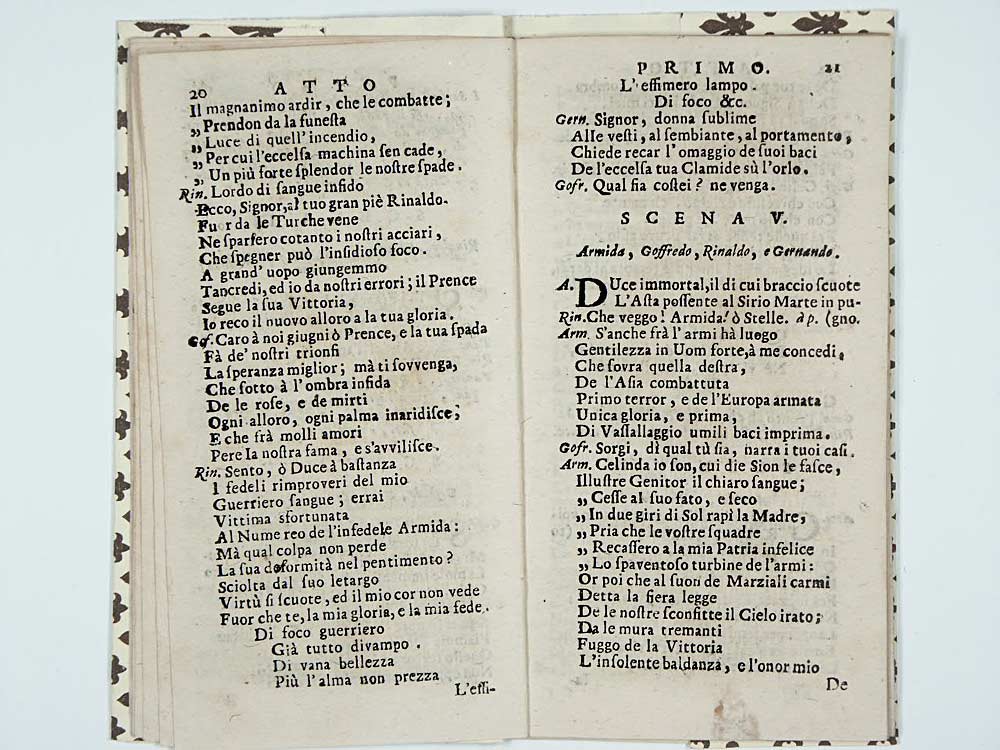 20 ATTO
Il magnanimo ardir, che le combatte;
„Prendon da la funeſta
„Luce di quell'incendio,
„Per cui l'eccelſa machina ſen cade,
„Un più forte ſplendor le noſtre ſpade.
Rin. Lordo di ſangue infido
Ecco, Signor, al tuo gran piè Rinaldo.
Fuor da le Turche vene
Ne ſparſero cotanto i noſtri acciari,
Che ſpegner può l'inſidioſo foco.
A grand' uopo giungemmo
Tancredi, ed io da noſtri errori; il Prence
Segue la ſua Vittoria,
Io reco il nuovo alloro a la tua gloria.
Gof. Caro à noi giugni ò Prence, e la tua ſpada
Fà de' noſtri trionfi
La ſperanza miglior; mà ti ſovvenga,
Che ſotto à l'ombra infida
De le roſe, e de mirti
Ogni alloro, ogni palma inaridiſce;
E che frà molli amori
Pere la noſtra fama, e s'avviliſce.
Rin. Sento, ò Duce à baſtanza
I fedeli rimproveri del mio
Guerriero ſangue; errai
Vittima sfortunata
Al Nume reo de l'infedele Armida:
Mà qual colpa non perde
La ſua deformità nel pentimento?
Sciolta dal ſuo letargo
Virtù ſi ſcuote, ed il mio cor non vede
Fuor che te, la mia gloria, e la mia fede.
Di foco guerriero
Già tutto divampo.
Di vana bellezza
Più l'alma non prezza
L'effi-
PRIMO. 21
L'effimero lampo.
Di foco &c.
Gern. Signor, donna ſublime
Alle veſti, al ſembiante, al portamento,
Chiede recar l'omaggio de ſuoi baci
De l'eccelſa tua Clamide sù l'orlo.
Gofr. Qual ſia coſtei? ne venga.
SCENA V.
Armida, Goffredo, Rinaldo, e Gernando.
A. DUce immortal, il di cui braccio ſcuote
L'Aſta poſſente al Sirio Marte in pu-
Rin. Che veggo! Armida! ò Stelle. à p. (gno.
Arm. S'anche frà l'armi hà luogo
Gentilezza in Uom forte, à me concedi,
Che ſovra quella deſtra,
De l'Aſia combattuta
Primo terror, e de l'Europa armata
Unica gloria, e prima,
Di Vaſſallaggio umili baci imprima.
Gofr. Sorgi, di qual tù ſia, narra i tuoi caſi.
Arm. Celinda io ſon, cui diè Sion le faſce,
Illuſtre Genitor il chiaro ſangue;
„Ceſſe al ſuo fato, e ſeco
„In due giri di Sol rapì la Madre,
„Pria che le voſtre ſquadre
„Recaſſero a la mia Patria infelice
„Lo ſpaventoſo turbine de l'armi:
Or poi che al ſuon de Marziali carmi
Detta la fiera legge
De le noſtre ſconfitte il Cielo irato;
Da le mura tremanti
Fuggo de la Vittoria
L'inſolente baldanza, e l'onor mio
De